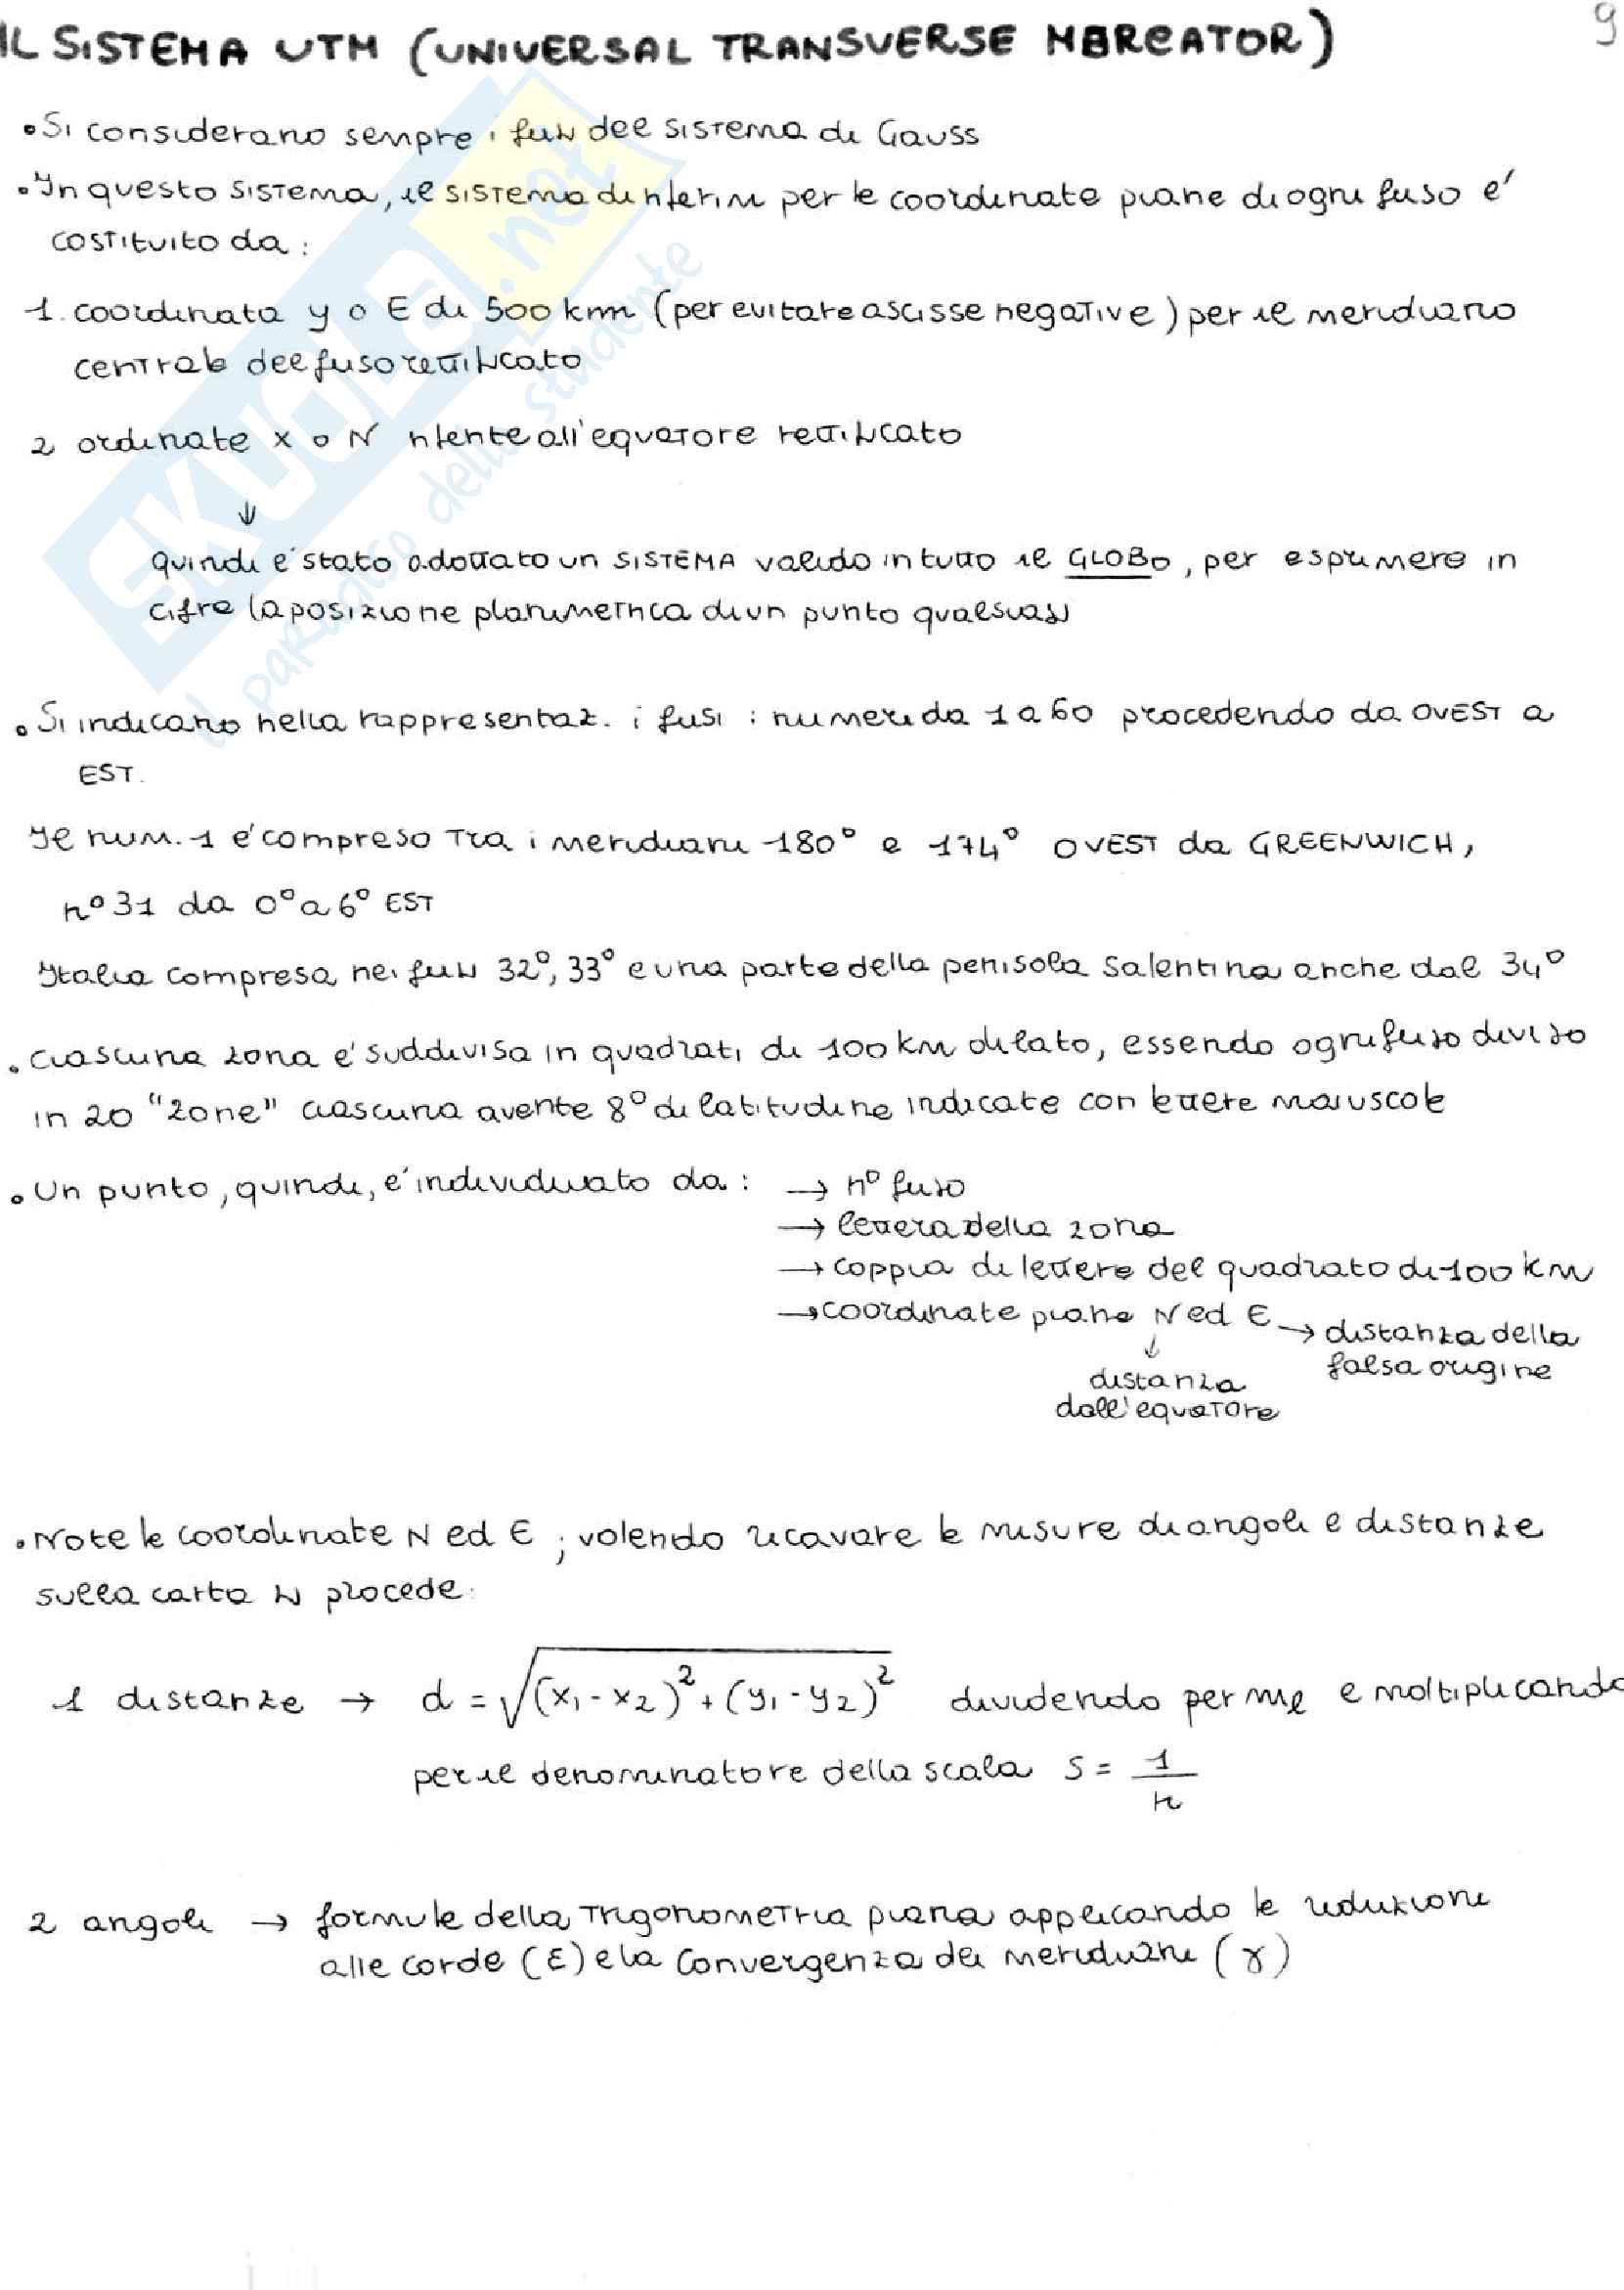 IL SISTEMA UTM (UNIVERSAL TRANSVERSE MERCATOR)
9
• Si considerano sempre i fusi del sistema di Gauss
• In questo sistema, il sistema di riferim per le coordinate piane di ogni fuso e'
costituito da :
1. coordinata y o E di 500 km (per evitare ascisse negative) per il meridiano
centrale del fuso rettificato
2 ordinate x o N riferite all'equatore rettificato
↓
quindi e' stato adottato un SISTEMA valido in tutto il GLOBO, per esprimere in
cifre la posizione planimetrica di un punto qualsiasi
• Si indicano nella rappresentaz. i fusi : numeri da 1 a 60 procedendo da OVEST a
EST.
Il num. 1 e' compreso tra i meridiani 180° e 174° OVEST da GREENWICH,
n° 31 da 0° a 6° EST
Italia compresa nei fusi 32°, 33° e una parte della penisola Salentina anche dal 34°
• ciascuna zona e' suddivisa in quadrati di 100 km di lato, essendo ogni fuso diviso
in 20 "zone" ciascuna avente 8° di latitudine indicate con lettere maiuscole
• Un punto, quindi, e' individuato da : → n° fuso
→ lettera della zona
→ coppia di lettere del quadrato di 100 km
→ coordinate piane N ed E → distanza della
falsa origine
↓
distanza
dall'equatore
• Note le coordinate N ed E ; volendo ricavare le misure di angoli e distanze
sulla carta si procede:
1 distanze → d = √(x₁ - x₂)² + (y₁ - y₂)² dividendo per ml e moltiplicando
per il denominatore della scala S = 1/n
2 angoli → formule della trigonometria piana applicando le riduzioni
alle corde (ε) e la convergenza dei meridiani (γ)
SKUOLA.net
il paradiso dello studente